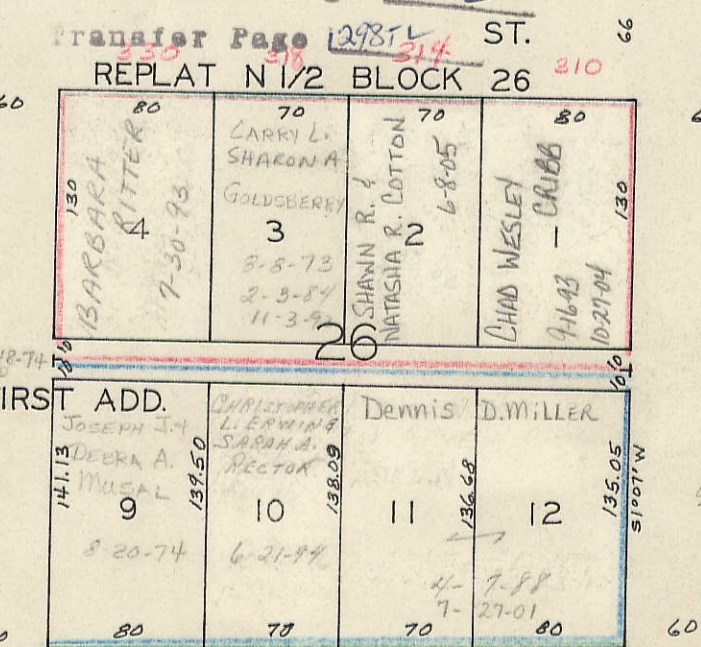 Transfer Page 1298TL ST. 66
330 318 314 310
REPLAT N 1/2 BLOCK 26
60
80 70 70 80
130 130
BARBARA
RITTER
4
7-30-93
LARRY L.
SHARON A
GOLDSBERRY
3
8-8-73
2-3-84
11-3-92
SHAWN R. &
NATASHA R. COTTON
2
6-8-05
CHAD WESLEY
CRIBB
1
9-16-93
10-27-04
26
18-74
10 10
10 10
FIRST ADD.
JOSEPH J. &
DEBRA A.
MUSAL
141.13
9
139.50
8-20-74
CHRISTOPHER
L. ERWING
SARAH A.
RECTOR
10
138.09
6-21-94
Dennis D. MILLER
11
136.68
12
135.05
S1°07'W
4- 7-88
7- 27-01
80 70 70 80 60